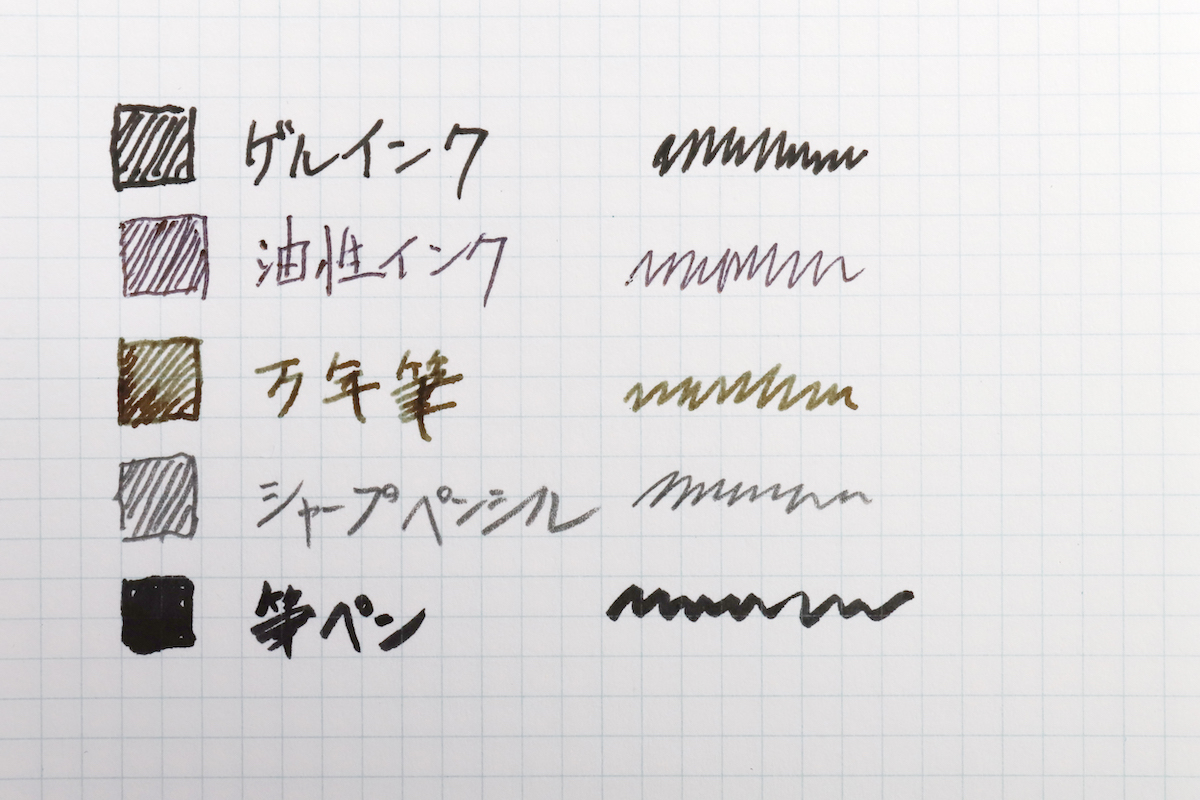 ゲルインク
油性インク
万年筆
シャープペンシル
筆ペン